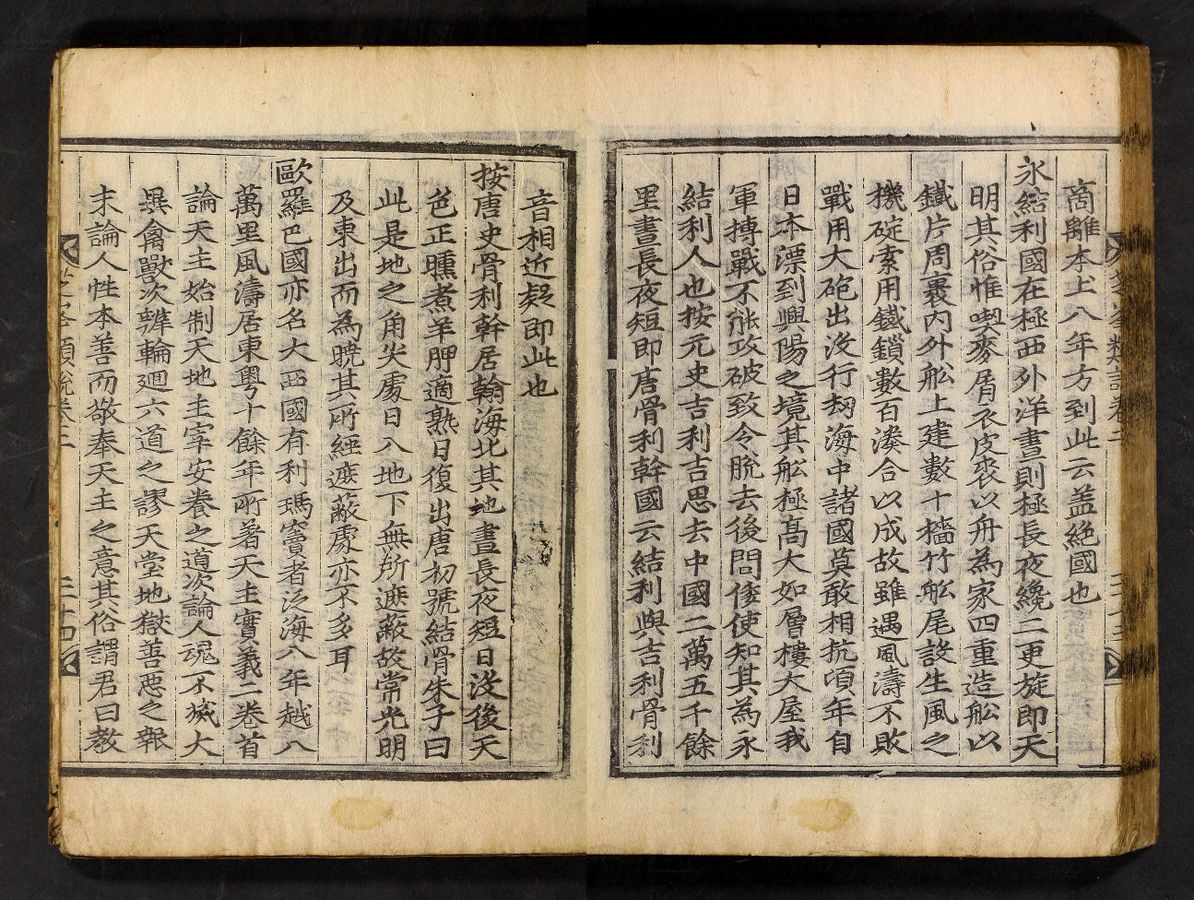 商離本土八年方到此云盖絶國也
永結利國在極西外洋晝則極長夜纔二更旋即天
明其俗惟喫麥屑衣皮裘以舟為家四重造舩以
鐵片周裹內外舩上建數十檣竹舩尾設生風之
機碇索用鐵鎖數百湊合以成故雖遇風濤不敗
戰用大砲出沒行刼海中諸國莫敢相抗頃年自
日本漂到興陽之境其舩極髙大如層樓大屋我
軍搏戰不能攻破致令脫去後問倭使知其為永
結利人也按元史吉利吉思去中國二萬五千餘
里晝長夜短即唐骨利幹國云結利與吉利骨利
音相近疑即此也
按唐史骨利幹居翰海北其地晝長夜短日沒後天
色正曛煮羊胛適熟日復出唐初號結骨朱子曰
此是地之角尖處日入地下無所遮蔽故常光明
及東出而為曉其所經遮蔽處亦不多耳
歐羅巴國亦名大西國有利瑪竇者泛海八年越八
萬里風濤居東粵十餘年所著天主實義二卷首
論天主始制天地主宰安養之道次論人魂不滅大
異禽獸次辨輪廻六道之謬天堂地獄善惡之報
末論人性本善而敬奉天主之意其俗謂君曰教
類說卷二